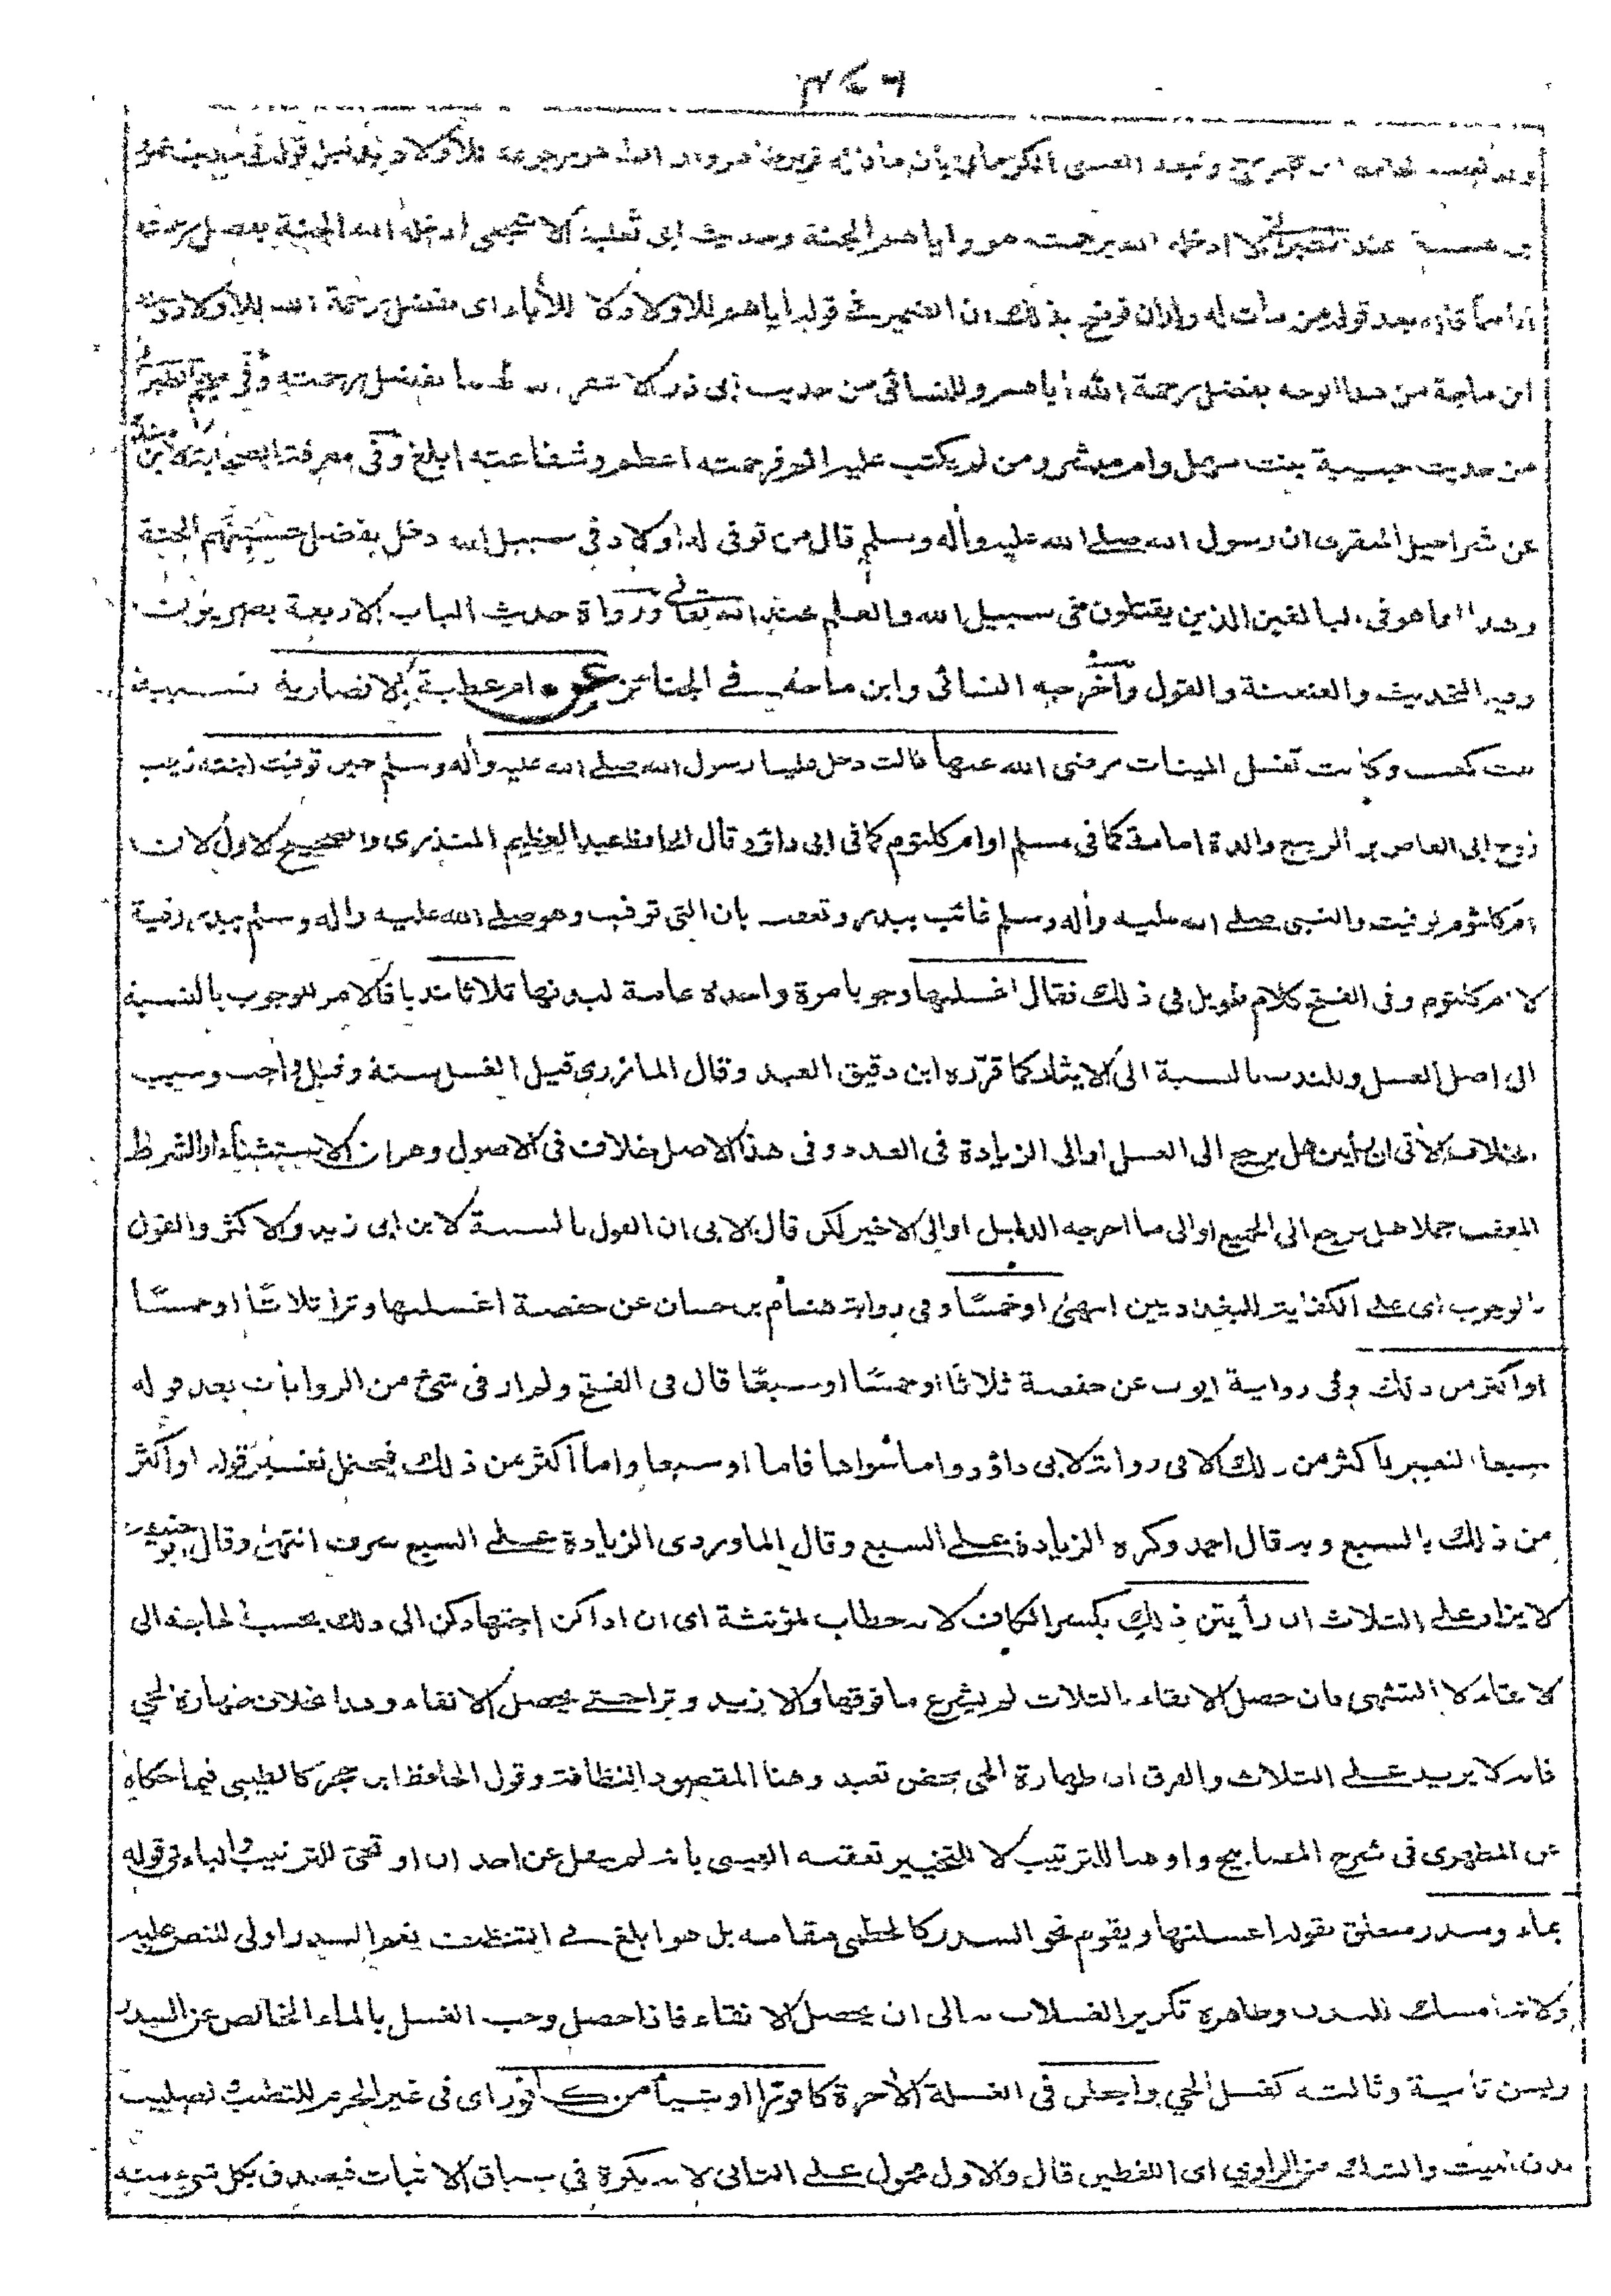 ٣٤٦
عند الطبراني الا ادخله الله برحمته هو واياهم الجنة وحديث ابى ثعلبة الاشجعى ادخله الله الجنة بفضل رحمته
اياهما قاله بعد قوله من مات له ولدان فوضح بذلك ان الضمير في قوله اياهم للاولاد لا للآباء اى بفضل رحمة الله للاولاد وعند
ابن ماجة من هذا الوجه بفضل رحمة الله اياهم وللنسائى من حديث ابى ذر الا غفر الله لهما بفضل رحمته وفى معجم الطبرانى
من حديث حبيبة بنت سهل وام مبشر ومن لم يكتب عليه اثم فرحمته اعظم وشفاعته ابلغ وفى معرفة الصحابة لابن منده
عن شراحيل المنقرى ان رسول الله صلے الله عليه وأله وسلم قال من توفى له اولاد فى سبيل الله دخل بفضل حسبتهم الجنة
وهذا انما هو فى البالغين الذين يقتلون فى سبيل الله والعلم عند الله تعالى ورواة حديث الباب الاربعة بصريون
وفيه التحديث والعنعنة والقول وأخرجه النسائى وابن ماجه فے الجنائز عن ام عطية الانصارية نسيبة
بنت كعب وكانت تغسل الميتات رضى الله عنها قالت دخل علينا رسول الله صلے الله عليه وأله وسلم حين توفيت ابنته زينب
زوج ابى العاص بن الربيع والدة امامة كما فى مسلم او ام كلثوم كما فى ابى داؤد قال الحافظ عبد العظيم المنذرى والصحيح الاول لان
ام كلثوم توفيت والنبى صلے الله عليه وأله وسلم غائب ببدر وتعقب بان التى توفيت وهو صلے الله عليه وأله وسلم ببدر رقية
لا ام كلثوم وفى الفتح كلام طويل فى ذلك فقال اغسلنها وجوبا مرة واحدة عامة لبدنها ثلاثا ندبا فالامر للوجوب بالنسبة
الى اصل الغسل وللندب بالنسبة الى الايتار كما قرّره ابن دقيق العيد وقال المازرى قيل الغسل سنة وقيل واجب وسبب
الخلاف الأتى ان رأيتن هل يرجع الى الغسل او الى الزيادة فى العدد وفى هذا الاصل خلاف فى الاصول وهو ان الاستثناء او الشرط
المعقب جملا هل يرجع الى الجميع او الى ما اخرجه الدليل او الى الاخير لكن قال الابى ان القول بالسنية لابن ابى زيد والاكثر والقول
بالوجوب اى على الكفاية للبغداديين انتهى او خمسًا وفى رواية هشام بن حسان عن حفصة اغسلنها وترا ثلاثًا او خمسًا
او اكثر من ذلك وفى رواية ايوب عن حفصة ثلاثًا او خمسًا او سبعًا قال فى الفتح ولم ار فى شئ من الروايات بعد قوله
سبعا التعبير باكثر من ذلك الا فى رواية لابى داؤد واما سواها فاما او سبعا واما أكثر من ذلك فيحتمل تفسير قوله او أكثر
من ذلك بالسبع وبه قال احمد وكره الزيادة علے السبع وقال الماوردى الزيادة علے السبع سرف انتهى وقال ابو حنيفة
لا يزاد علے الثلاث ان رأيتن ذلكِ بكسر الكاف لانه خطاب لمؤنثة اى ان اداكن اجتهادكن الى ذلك بحسب الحاجة الى
الانقاء لا التشهى فان حصل الانقاء بالثلاث لم يشرع ما فوقها والا زيد وترا حتے يحصل الانقاء وهذا بخلاف طهارة الحى
فانه لا يزيد علے الثلاث والفرق ان طهارة الحى محض تعبد وهنا المقصود النظافة وقول الحافظ ابن حجر كالطيبى فيما حكاه
عن المظهرى فى شرح المصابيح واو هنا للترتيب لا للتخيير تعقبه العينى بانه لم ينقل عن احد ان او تجئ للترتيب والباء فى قوله
بماء وسدر متعلق بقوله اغسلنها ويقوم نحو السدر كالخطمى مقامه بل هو ابلغ فے التنظيف نعم السدر اولى للنص عليه
ولانه امسك للبدن وظاهره تكرير الغسلات به الى ان يحصل الانقاء فاذا حصل وجب الغسل بالماء الخالص عن السدر
ويسن ثانية وثالثة كغسل الحي واجعلن فى الغسلة الأخرة كافورًا او شيأ من كافور اى فى غير المحرم للتطيب لتصليبه
بدن الميت والشك من الراوي اى اللفظين قال والاول محمول علے الثانى لانه نكرة فى سياق الاثبات فيصدق بكل شئ منه